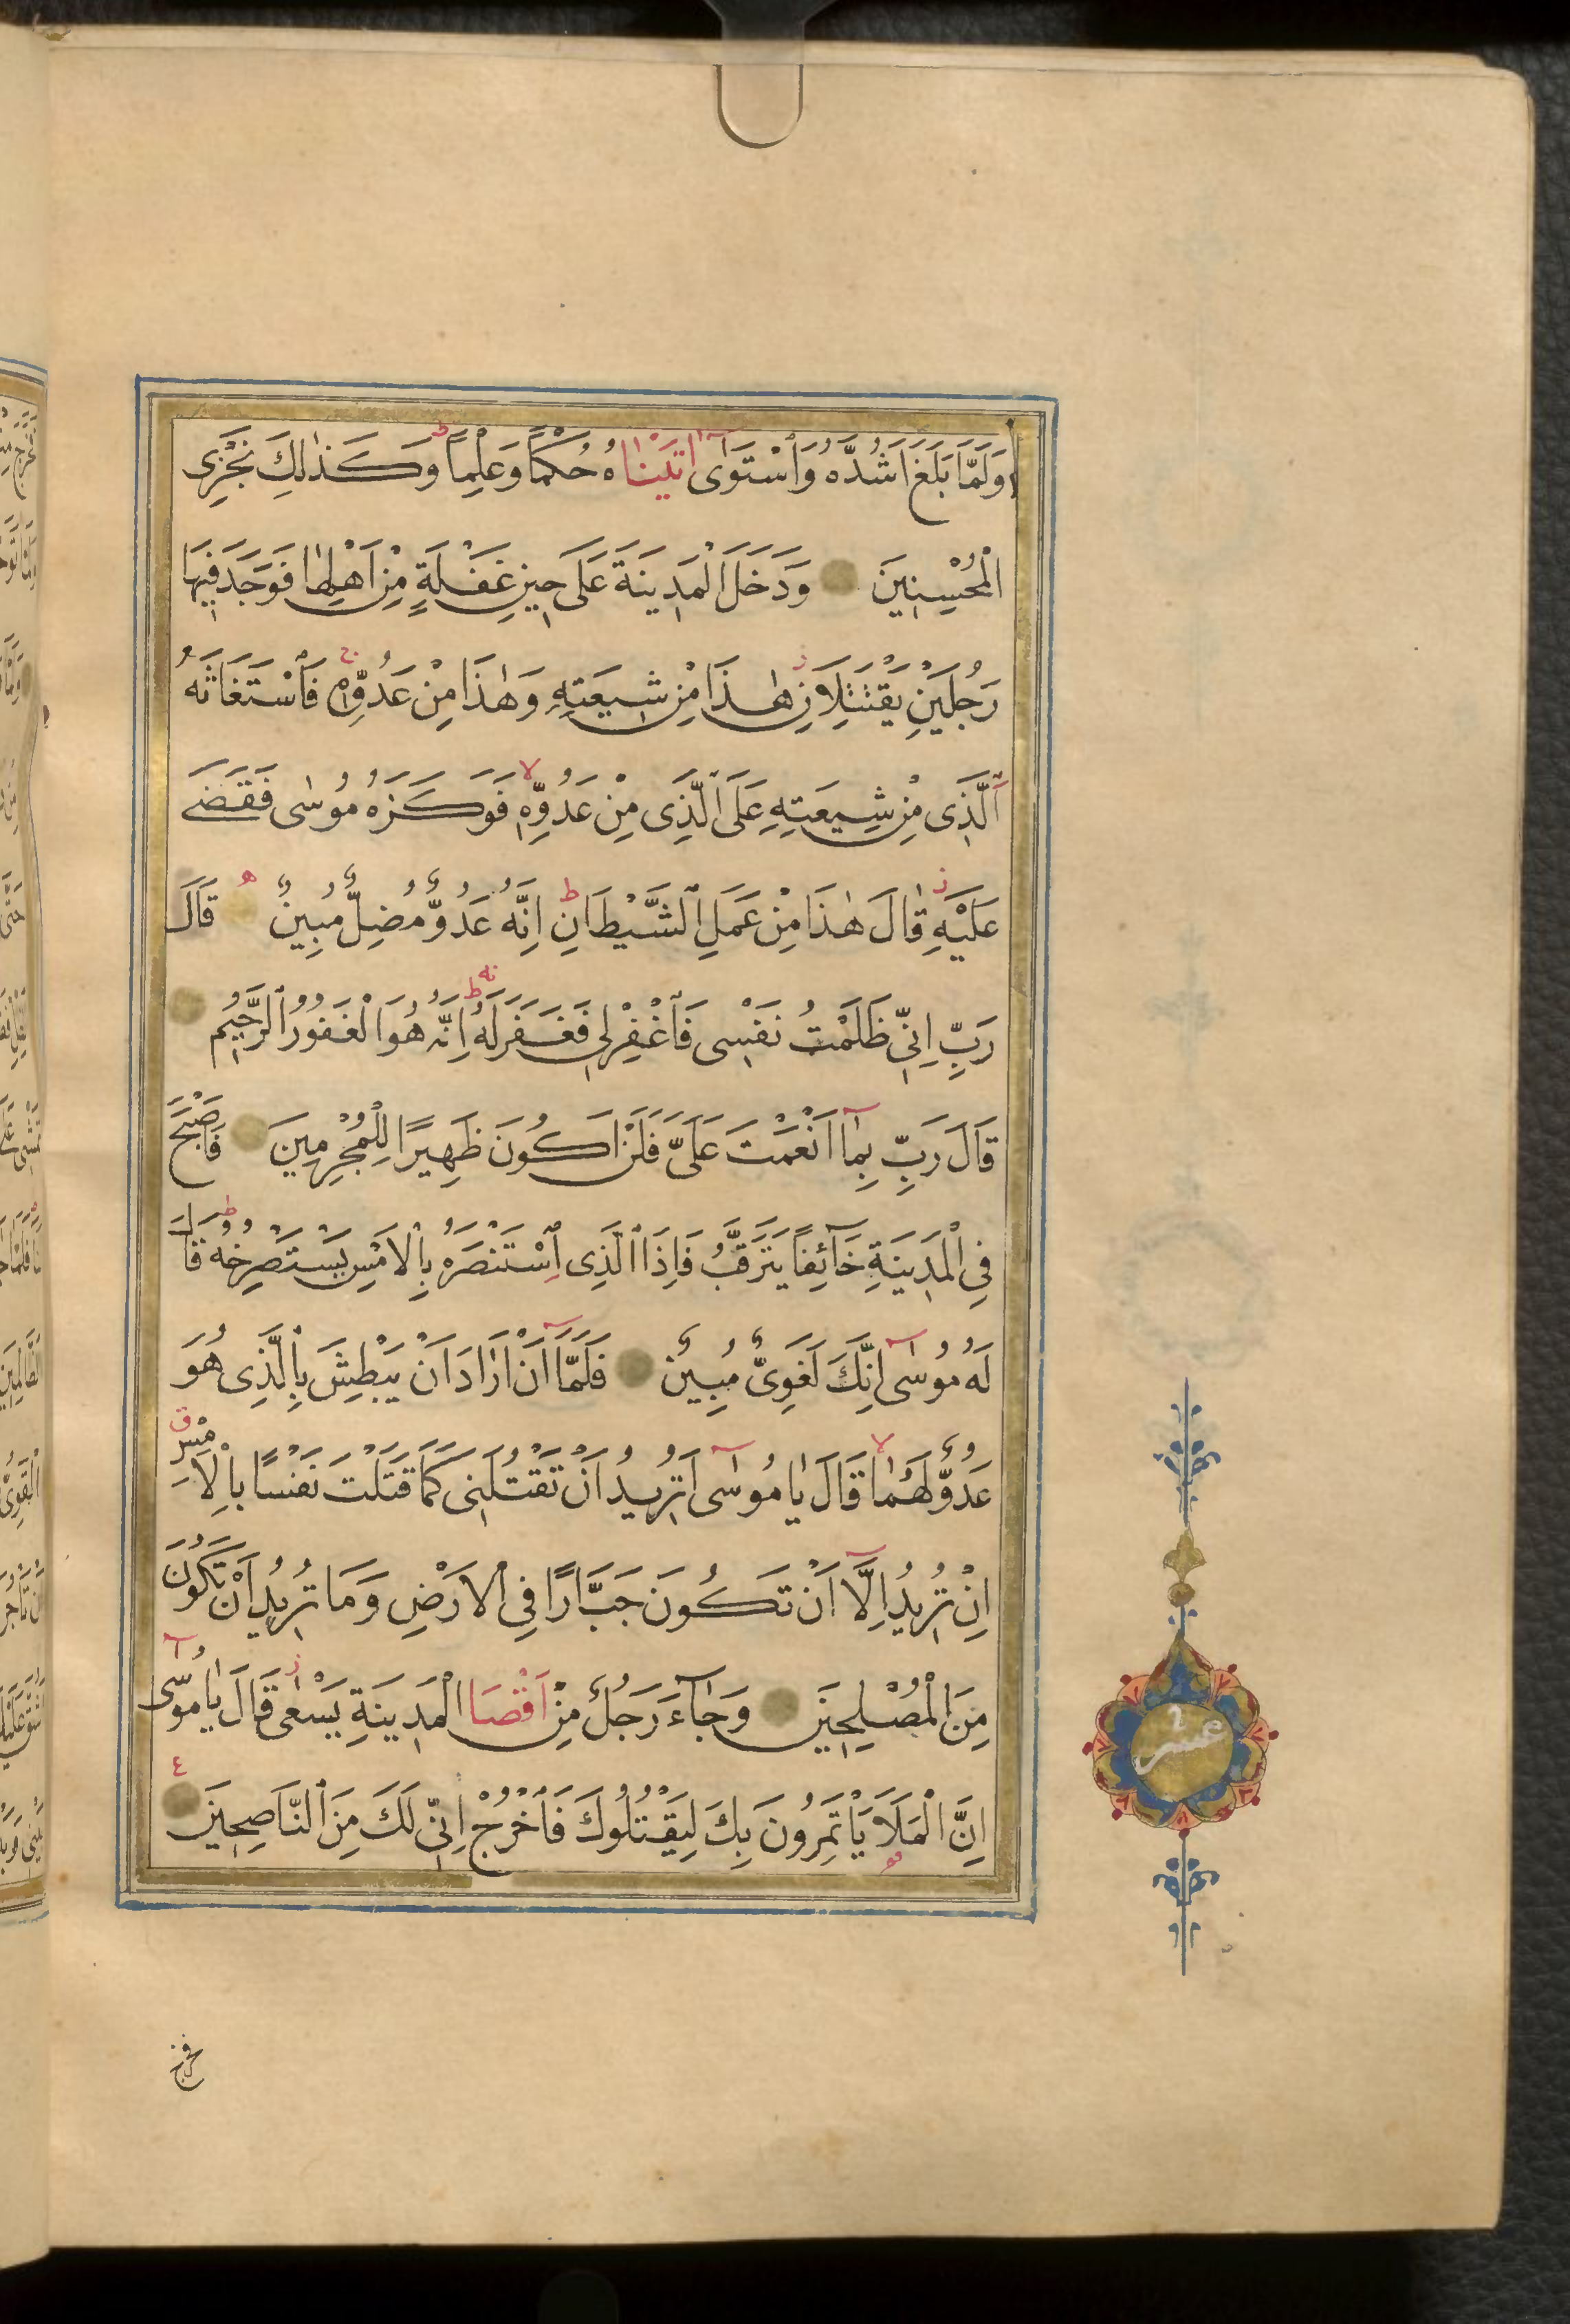 وَلَمَّا بَلَغَ اَشُدَّهُ وَاسْتَوٰٓى اٰتَيْنَاهُ حُكْمًا وَعِلْمًا ط وَكَذٰلِكَ نَجْزِى
الْمُحْسِنِينَ وَدَخَلَ الْمَدِينَةَ عَلَى حِينِ غَفْلَةٍ مِنْ اَهْلِهَا فَوَجَدَ فِيهَا
رَجُلَيْنِ يَقْتَتِلَانِ ز هٰذَا مِنْ شِيعَتِهِ وَهٰذَا مِنْ عَدُوِّهِ ج فَاسْتَغَاثَهُ
الَّذِى مِنْ شِيعَتِهِ عَلَى الَّذِى مِنْ عَدُوِّهِ لا فَوَكَزَهُ مُوسٰى فَقَضٰى
عَلَيْهِ ز قَالَ هٰذَا مِنْ عَمَلِ الشَّيْطَانِ ط اِنَّهُ عَدُوٌّ مُضِلٌّ مُبِينٌ ه قَالَ
رَبِّ اِنِّى ظَلَمْتُ نَفْسِى فَاغْفِرْ لِى فَغَفَرَ لَهُ ط اِنَّهُ هُوَ الْغَفُورُ الرَّحِيمُ
قَالَ رَبِّ بِمَآ اَنْعَمْتَ عَلَىَّ فَلَنْ اَكُونَ ظَهِيرًا لِلْمُجْرِمِينَ فَاَصْبَحَ
فِى الْمَدِينَةِ خَآئِفًا يَتَرَقَّبُ فَاِذَا الَّذِى اسْتَنْصَرَهُ بِالْاَمْسِ يَسْتَصْرِخُهُ ط قَالَ
لَهُ مُوسٰٓى اِنَّكَ لَغَوِىٌّ مُبِينٌ فَلَمَّآ اَنْ اَرَادَ اَنْ يَبْطِشَ بِالَّذِى هُوَ
عَدُوٌّ لَهُمَا لا قَالَ يَا مُوسٰٓى اَتُرِيدُ اَنْ تَقْتُلَنِى كَمَا قَتَلْتَ نَفْسًا بِالْاَمْسِ ق
اِنْ تُرِيدُ اِلَّآ اَنْ تَكُونَ جَبَّارًا فِى الْاَرْضِ وَمَا تُرِيدُ اَنْ تَكُونَ
مِنَ الْمُصْلِحِينَ وَجَآءَ رَجُلٌ مِنْ اَقْصَا الْمَدِينَةِ يَسْعٰى ز قَالَ يَا مُوسٰٓى
اِنَّ الْمَلَاَ يَاْتَمِرُونَ بِكَ لِيَقْتُلُوكَ فَاخْرُجْ اِنِّى لَكَ مِنَ النَّاصِحِينَ ٤
عشر
فخرج